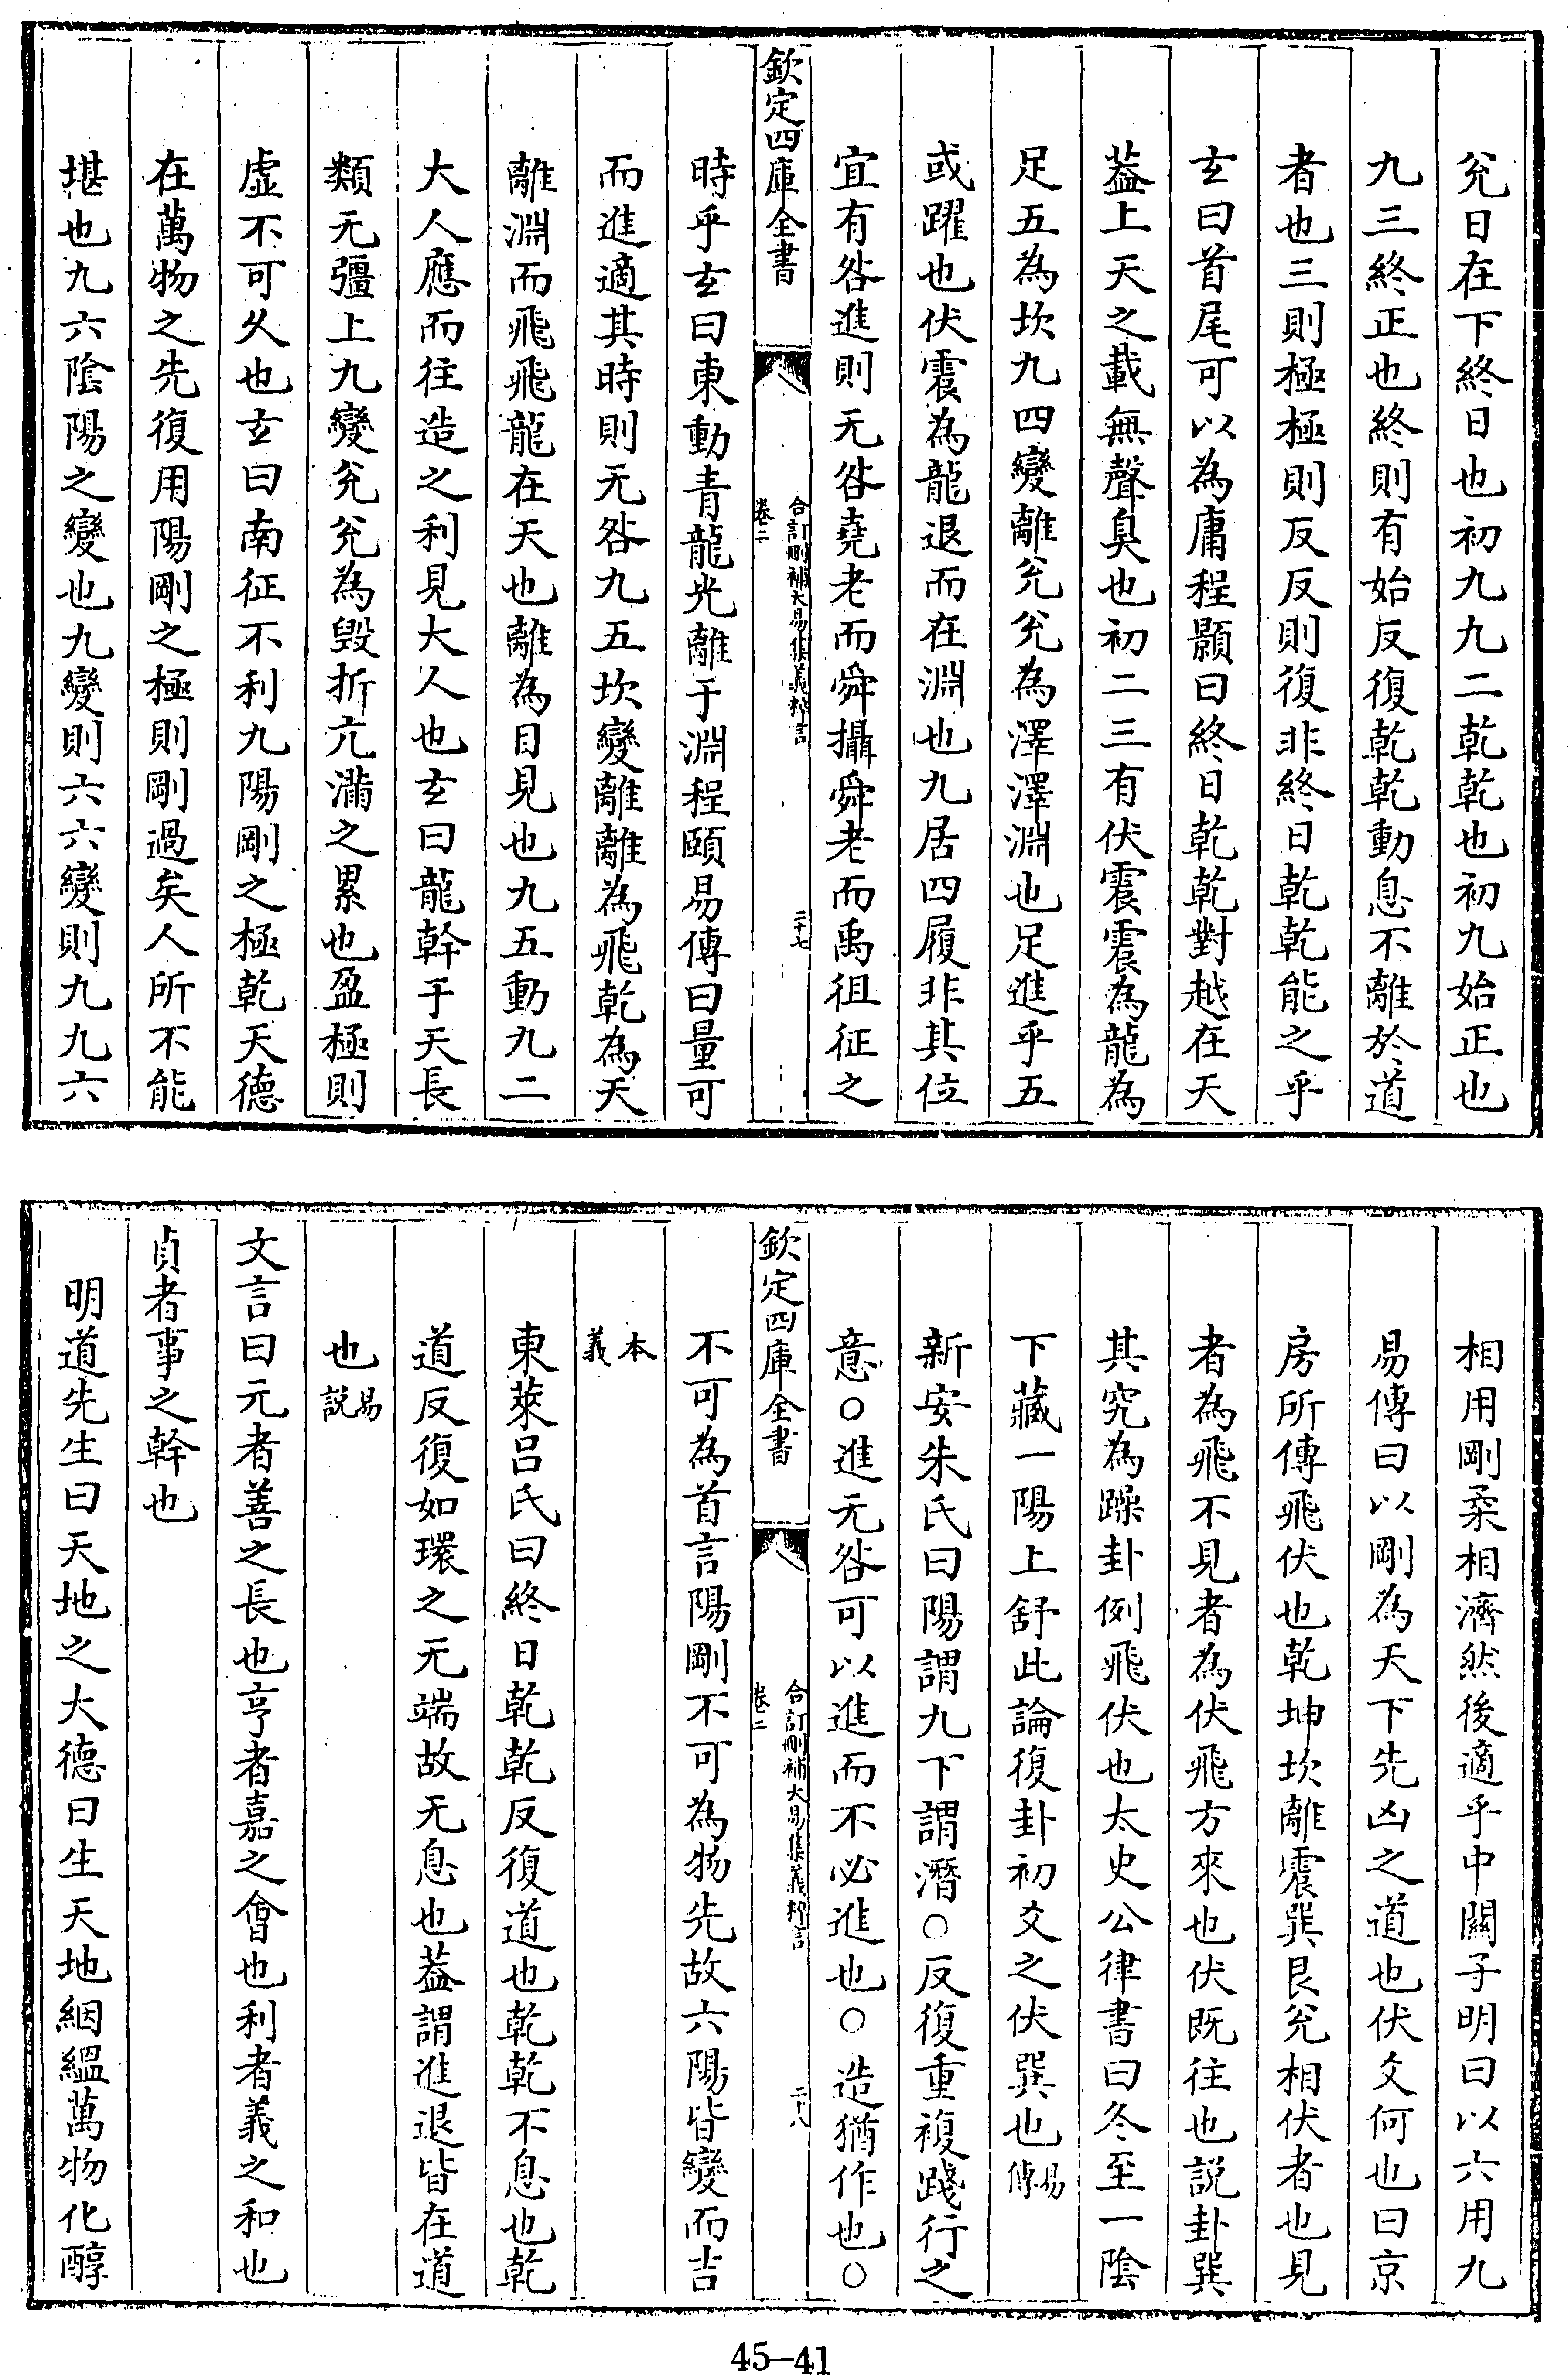 兊日在下終日也初九九二乾乾也初九始正也
九三終正也終則有始反復乾乾動息不離於道
者也三則極極則反反則復非終日乾乾能之乎
玄曰首尾可以為庸程顥曰終日乾乾對越在天
葢上天之載無聲臭也初二三有伏震震為龍為
足五為坎九四變離兊兊為澤澤淵也足進乎五
或躍也伏震為龍退而在淵也九居四履非其位
宜有咎進則无咎堯老而舜攝舜老而禹徂征之
欽定四庫全書
合訂刪補大易集義粹言
卷二
二十七
時乎玄曰東動青龍光離于淵程頤易傳曰量可
而進適其時則无咎九五坎變離離為飛乾為天
離淵而飛飛龍在天也離為目見也九五動九二
大人應而往造之利見大人也玄曰龍幹于天長
類无彊上九變兊兊為毀折亢滿之累也盈極則
虛不可久也玄曰南征不利九陽剛之極乾天德
在萬物之先復用陽剛之極則剛過矣人所不能
堪也九六陰陽之變也九變則六六變則九九六
相用剛柔相濟然後適乎中關子明曰以六用九
易傳曰以剛為天下先凶之道也伏爻何也曰京
房所傳飛伏也乾坤坎離震巽艮兊相伏者也見
者為飛不見者為伏飛方來也伏既往也説卦巽
其究為躁卦例飛伏也太史公律書曰冬至一陰
下藏一陽上舒此論復卦初爻之伏巽也易傳
新安朱氏曰陽謂九下謂潛○反復重複踐行之
意○進无咎可以進而不必進也○造猶作也○
欽定四庫全書
合訂刪補大易集義粹言
卷二
二十八
不可為首言陽剛不可為物先故六陽皆變而吉
本義
東萊呂氏曰終日乾乾反復道也乾乾不息也乾
道反復如環之无端故无息也葢謂進退皆在道
也易説
文言曰元者善之長也亨者嘉之會也利者義之和也
貞者事之幹也
明道先生曰天地之大德曰生天地絪縕萬物化醇
45–41